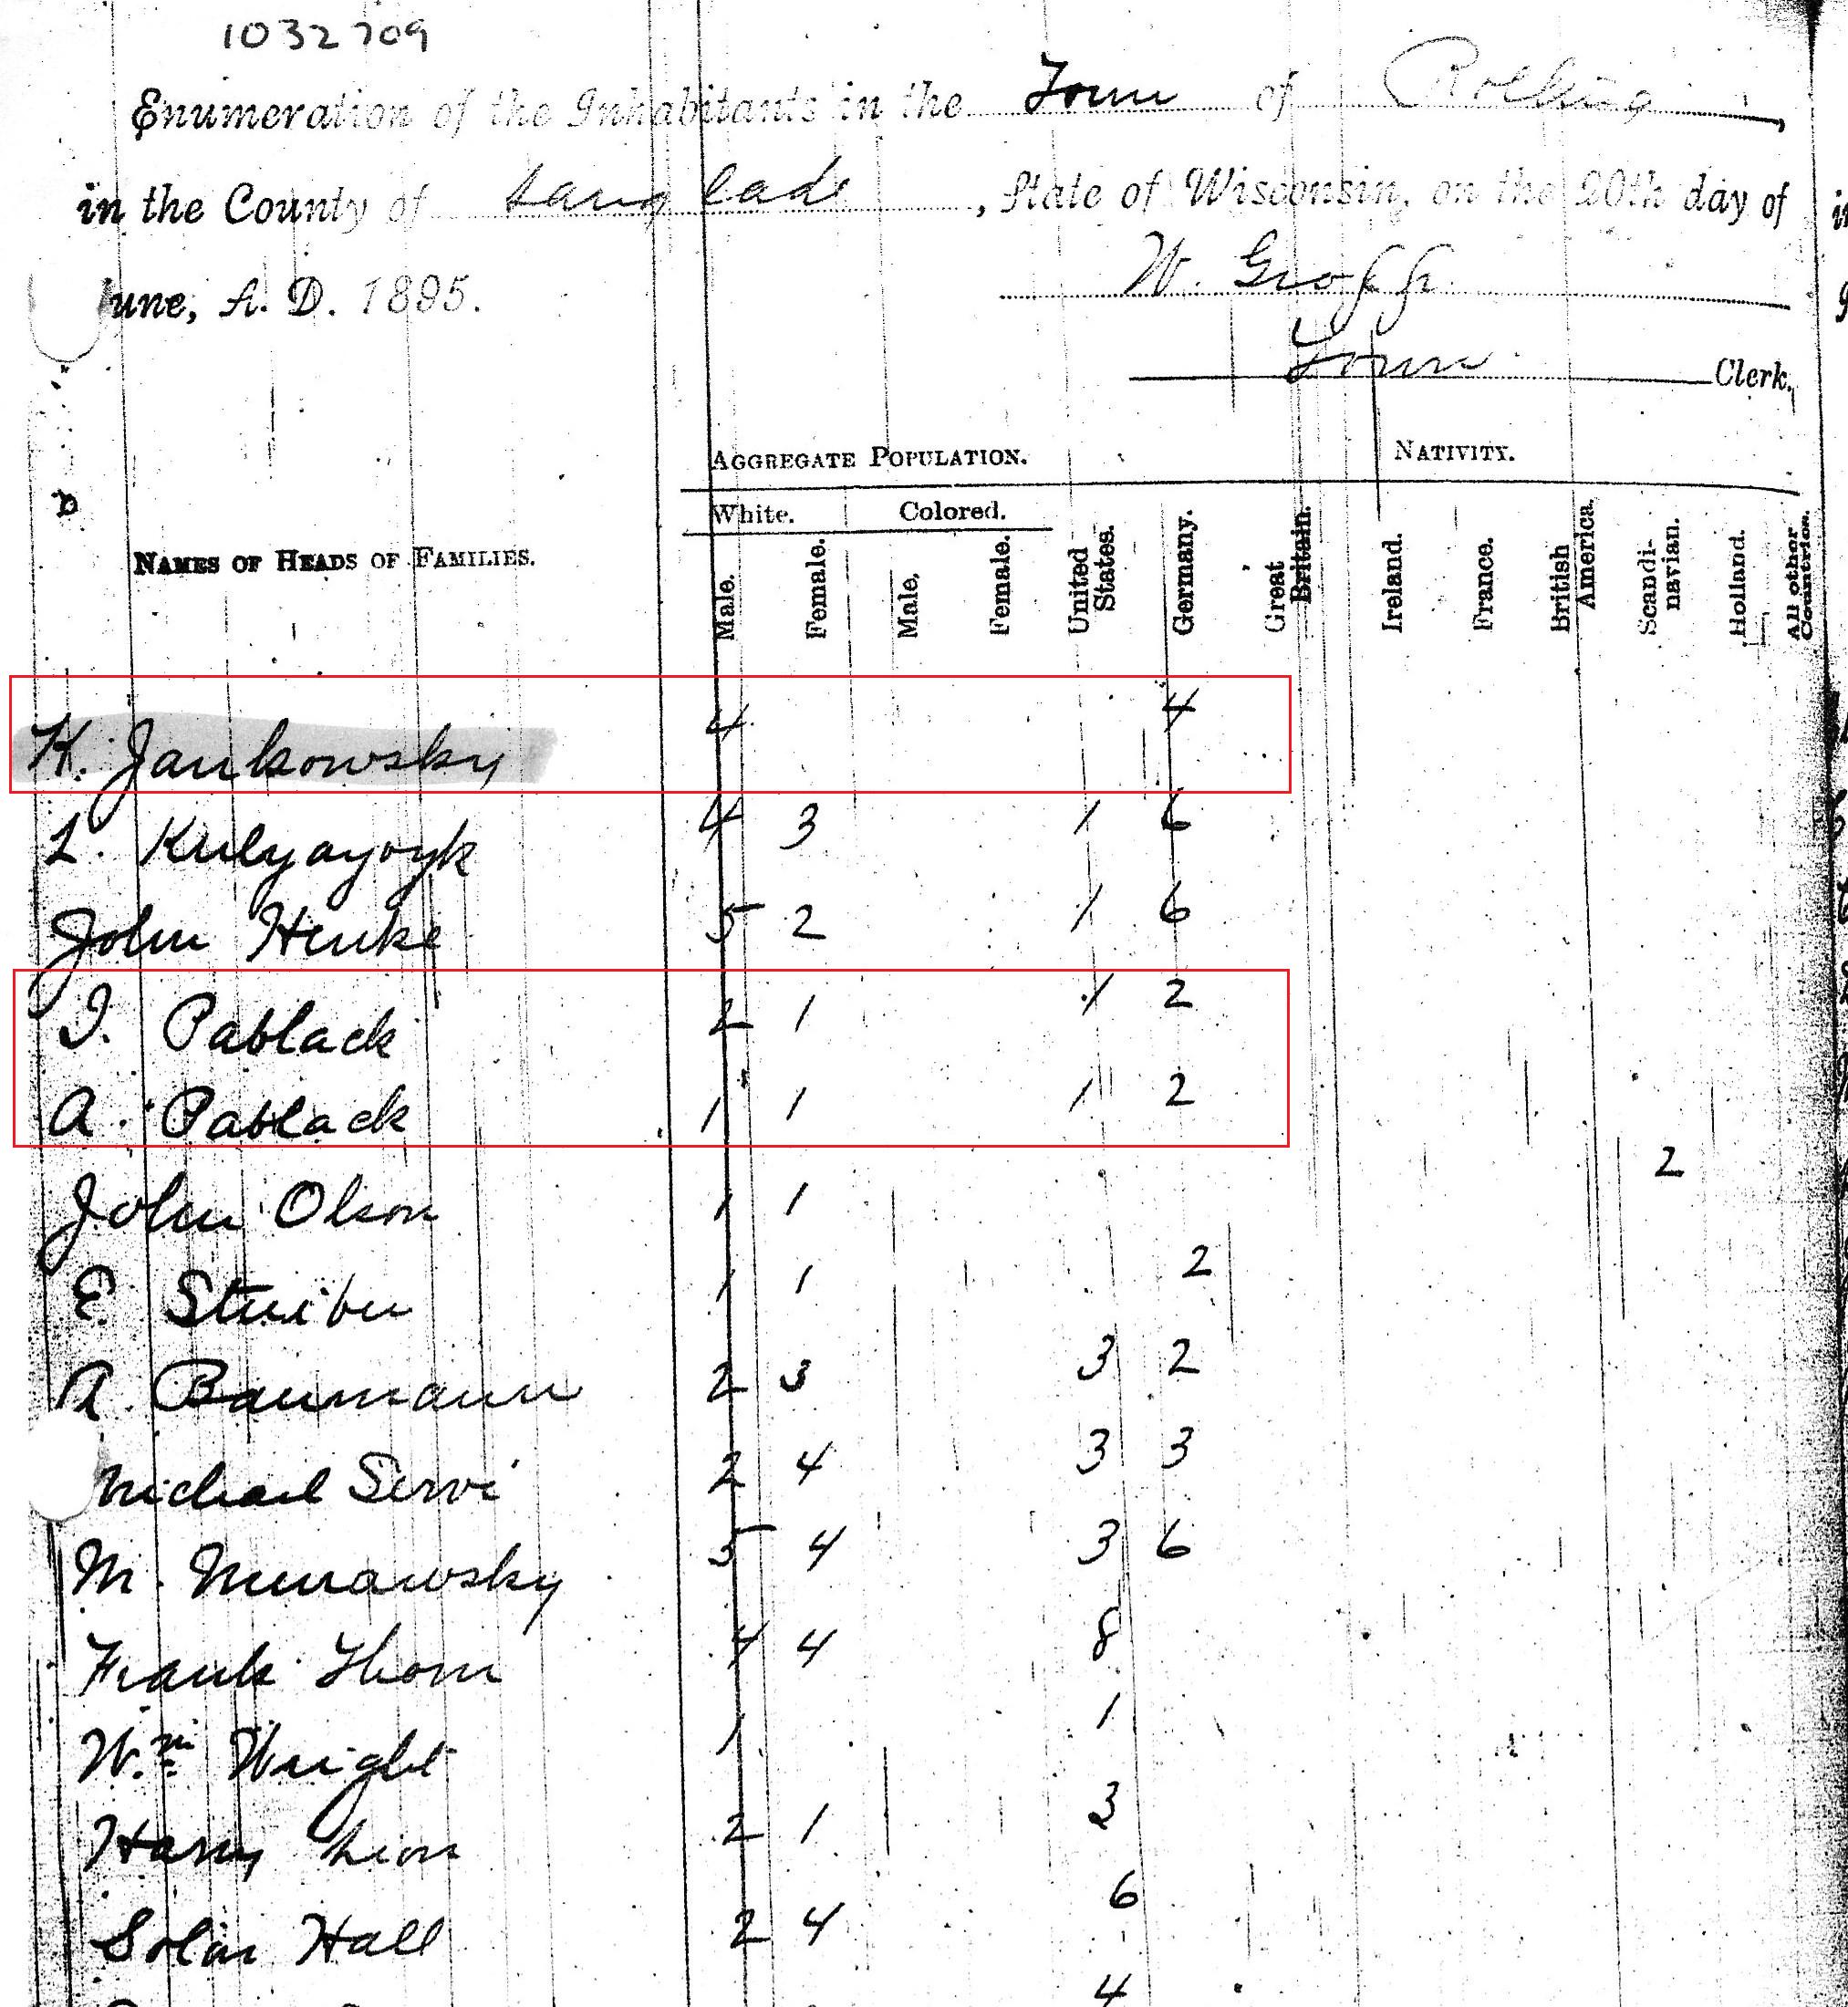 1032709
Enumeration of the Inhabitants in the Town of Rolling,
in the County of Langlade, State of Wisconsin, on the 20th day of
June, A. D. 1895.
W. Groff
Town Clerk.
AGGREGATE POPULATION. NATIVITY.
White. Colored.
NAMES OF HEADS OF FAMILIES. Male. Female. Male. Female. United States. Germany. Great Britain. Ireland. France. British America. Scandinavian. Holland. All other Countries.
K. Jankowsky 4 4
L. Kulyayoyk 4 3 1 6
John Henke 5 2 1 6
I. Pablack 2 1 1 2
A. Pablack 1 1 1 2
John Olson 1 1 2
E. 1 1 2
A. Baumann 2 3 3 2
Michael Servi 2 4 3 3
M. Murawsky 5 4 3 6
Frank Thom 4 4 8
Wm Wright 1 1
Harry Lion 2 1 3
Solan Hall 2 4 6
4